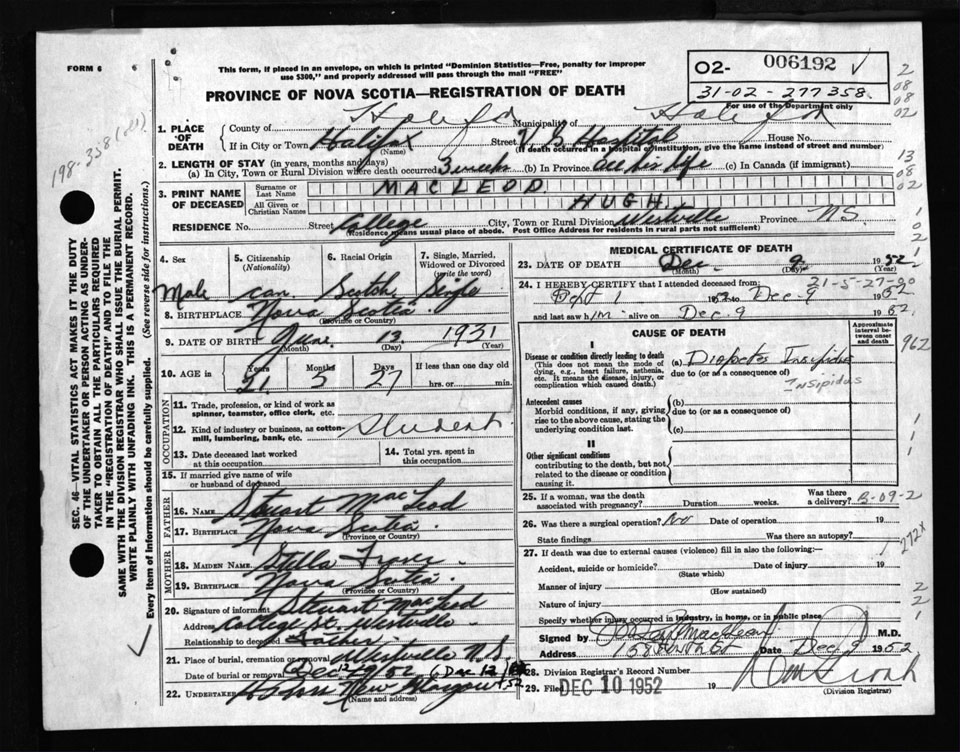 FORM 6
This form, if placed in an envelope, on which is printed "Dominion Statistics—Free, penalty for improper
use $300," and properly addressed will pass through the mail "FREE"
02- 006192
31-02-277358
For use of the Department only
PROVINCE OF NOVA SCOTIA—REGISTRATION OF DEATH
198-338
1. PLACE OF DEATH
County of Halifax Municipality of Halifax
If in City or Town Halifax (Name) Street V.G. Hospital House No.
(If death occurred in a hospital or institution, give the name instead of street and number)
2. LENGTH OF STAY (in years, months and days)
(a) In City, Town or Rural Division where death occurred 3 weeks (b) In Province All his life (c) In Canada (if immigrant)
3. PRINT NAME OF DECEASED
Surname or Last Name MACLEOD
All Given or Christian Names HUGH.
RESIDENCE No. Street College City, Town or Rural Division Westville Province N S
(Residence means usual place of abode. Post Office Address for residents in rural parts not sufficient)
SEC. 46—VITAL STATISTICS ACT MAKES IT THE DUTY
OF THE UNDERTAKER OR PERSON ACTING AS UNDER-
TAKER TO OBTAIN ALL THE PARTICULARS REQUIRED
IN THE "REGISTRATION OF DEATH" AND TO FILE THE
SAME WITH THE DIVISION REGISTRAR WHO SHALL ISSUE THE BURIAL PERMIT.
WRITE PLAINLY WITH UNFADING INK. THIS IS A PERMANENT RECORD.
Every item of information should be carefully supplied. (See reverse side for instructions.)
4. Sex Male
5. Citizenship (Nationality) Can
6. Racial Origin Scotch
7. Single, Married, Widowed or Divorced (write the word) Single
8. BIRTHPLACE Nova Scotia
(Province or Country)
9. DATE OF BIRTH June 12 1931
(Month) (Day) (Year)
10. AGE in Years 21 Months 5 Days 27 If less than one day old
hrs. or min.
OCCUPATION
11. Trade, profession, or kind of work as
spinner, teamster, office clerk, etc.
12. Kind of industry or business, as cotton-
mill, lumbering, bank, etc. Student
13. Date deceased last worked
at this occupation
14. Total yrs. spent in
this occupation
15. If married give name of wife
or husband of deceased
FATHER
16. NAME Stuart MacLeod
17. BIRTHPLACE Nova Scotia.
(Province or Country)
MOTHER
18. MAIDEN NAME Stella
19. BIRTHPLACE Nova Scotia.
(Province or Country)
20. Signature of informant Stewart MacLeod
Address College St. Westville
Relationship to deceased Father
21. Place of burial, cremation or removal Westville N.S.
Date of burial Dec 12/52
22. UNDERTAKER New Glasgow
(Name and address)
MEDICAL CERTIFICATE OF DEATH
23. DATE OF DEATH Dec. 9 1952
(Month) (Day) (Year)
24. I HEREBY CERTIFY that I attended deceased from: 21-5-27-90
Sept 1 1952 to Dec. 9 1952
and last saw him alive on Dec. 9 1952
CAUSE OF DEATH
Approximate interval between onset and death
I
Disease or condition directly leading to death
(This does not mean the mode of
dying, e.g., heart failure, asthenia,
etc. It means the disease, injury, or
complication which caused death.)
(a) Diabetes Insipidus
due to (or as a consequence of)
Insipidus
Antecedent causes
Morbid conditions, if any, giving
rise to the above cause, stating the
underlying condition last.
(b)
due to (or as a consequence of)
(c)
II
Other significant conditions
contributing to the death, but not
related to the disease or condition
causing it.
25. If a woman, was the death
associated with pregnancy? Duration weeks. Was there a delivery? B-09-2
26. Was there a surgical operation? No Date of operation 19
State findings Was there an autopsy?
27. If death was due to external causes (violence) fill in also the following:—
Accident, suicide or homicide? Date of injury 19
(State which)
Manner of injury
(How sustained)
Nature of injury
Specify whether injury occurred in industry, in home, or in public place
Signed by M.D.
Address Date Dec 9 1952
28. Division Registrar's Record Number
29. Filed DEC 10 1952 19
(Division Registrar)
962
272x